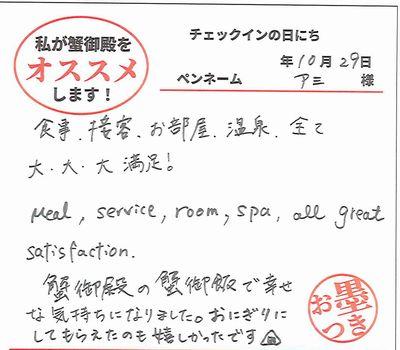 私が蟹御殿を
オススメ
します!
チェックインの日にち
年10月29日
ペンネーム アミ 様
食事、接客、お部屋、温泉、全て
大・大・大満足!
Meal, service, room, spa, all great
satisfaction.
蟹御殿の蟹御飯で幸せ
な気持ちになりました。おにぎりに
してもらえたのも嬉しかったです
お墨つき